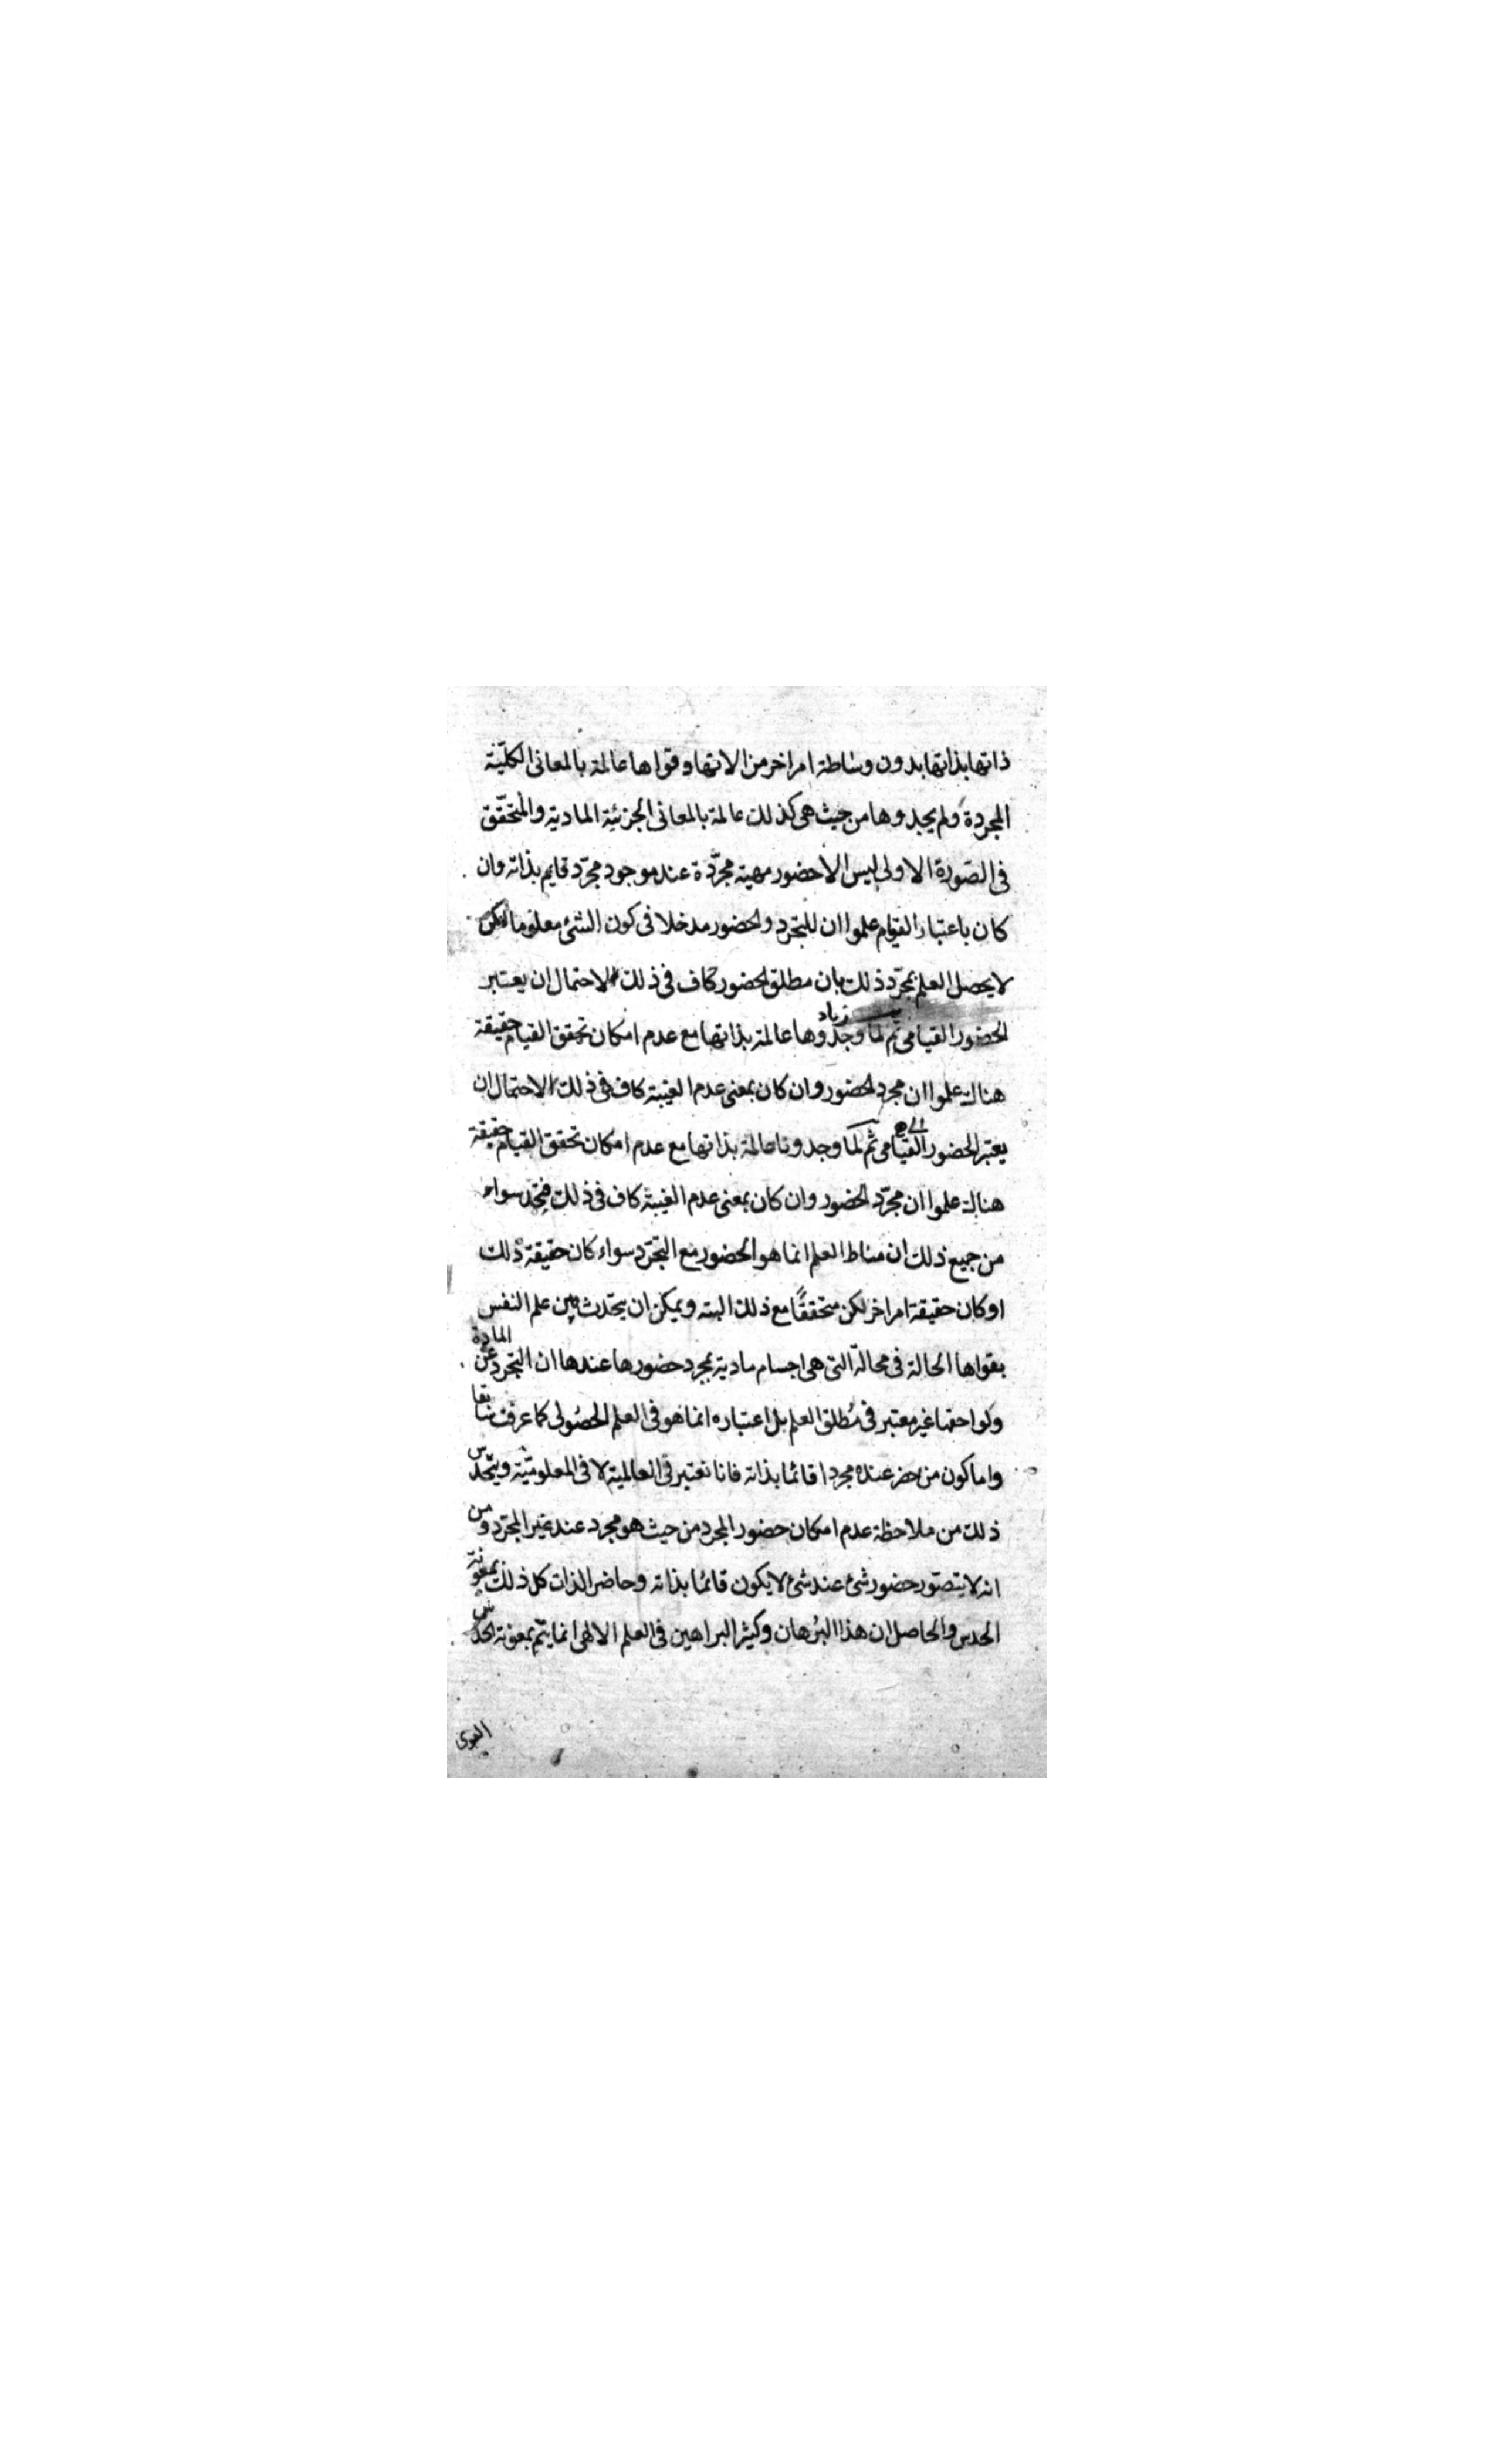 ذاتها بذاتها بدون وساطة امر اخر من الاتها وقواها عالمة بالمعانى الكلّيّة
المجردة ولم يجدوها من حيث هى كذلك عالمة بالمعانى الجزئية المادية والمتحقّق
فى الصّورة الاولى ليس الا حضور مهية مجرّدة عند موجود مجرّد قايم بذاته وان
كان باعتبار القيام علموا ان للتجرد والحضور مدخلا فى كون الشئ معلوما لكن
لا يحصل العلم بمجرّد ذلك بان مطلق الحضور كاف فى ذلك لاحتمال ان يعتبر
زياد
الحضور القيامى ثم لما وجدوها عالمة بذاتها مع عدم امكان تحقق القيام حقيقة
هناك علموا ان مجرد الحضور وان كان بمعنى عدم الغيبة كاف فى ذلك لاحتمال ان
الى
يعتبر الحضور القيامى ثم لما وجدونا عالمة بذاتها مع عدم امكان تحقق القيام حقيقة
هناك علموا ان مجرّد الحضور وان كان بمعنى عدم الغيبة كاف فى ذلك سواء
من جميع ذلك ان مناط العلم انما هو الحضور مع التجرّد سواء كان حقيقة ذلك
او كان حقيقة امر اخر لكن متحققًا مع ذلك البته ويمكن ان يتحدث من علم النفس
بقواها الحالة فى محالّ التى هى اجسام مادية بمجرد حضورها عندها ان التجرد عن المادة
ولواحقها غير معتبر فى مُطلق العلم بل اعتباره انما هو فى العلم الحصُولى كما عرفت سابقا
واما كون من حضر عنده مجردا قائما بذاته فانا نعتبر فى العالمية لا فى المعلوميّة ويتحدّس
ذلك من ملاحظة عدم امكان حضور المجرد من حيث هو مجرد عند غير المجرّد ومن
انه لا يتصوّر حضور شئ عند شئ لا يكون قائما بذاته وحاضر الذات كل ذلك بمعونة
الحدس والحاصل ان هذا البرُهان وكثير البراهين فى العلم الالهى انما يتمّ بمعونة الحدس
القوى